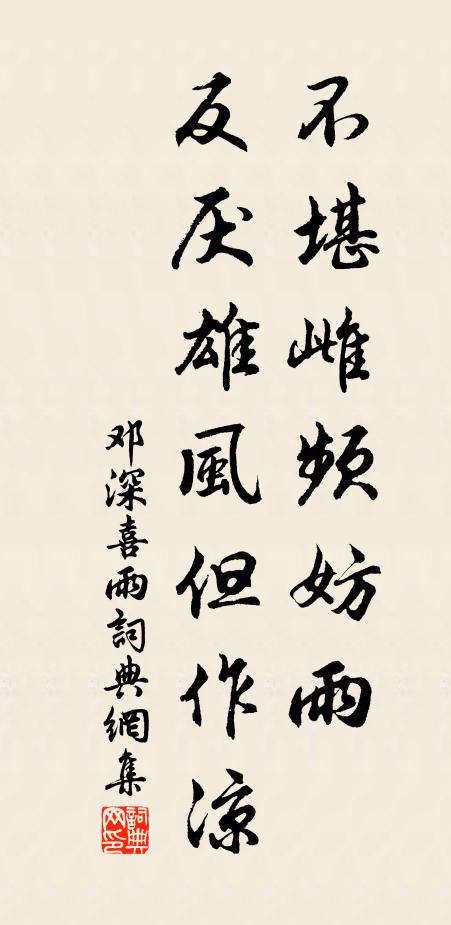 不堪雌频妨雨
反厌雄風但作凉
邓深喜雨詞典網集
詞典网印